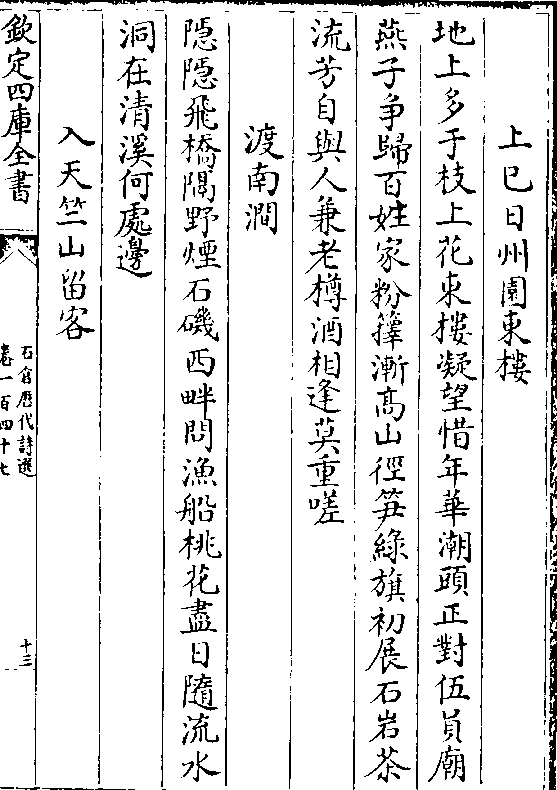 上巳日州園東樓
地上多于枝上花東樓凝望惜年華潮頭正對伍員廟
燕子爭歸百姓家粉籜漸髙山徑笋綠旗初展石岩茶
流芳自與人兼老樽酒相逢莫重嗟
渡南澗
隱隱飛橋隔野煙石磯西畔問漁船桃花盡日隨流水
洞在清溪何處邊
入天竺山留客
欽定四庫全書
石倉歷代詩選
卷一百四十七
十三